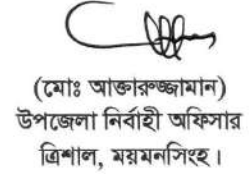 (মোঃ আক্তারুজ্জামান)
উপজেলা নির্বাহী অফিসার
ত্রিশাল, ময়মনসিংহ।